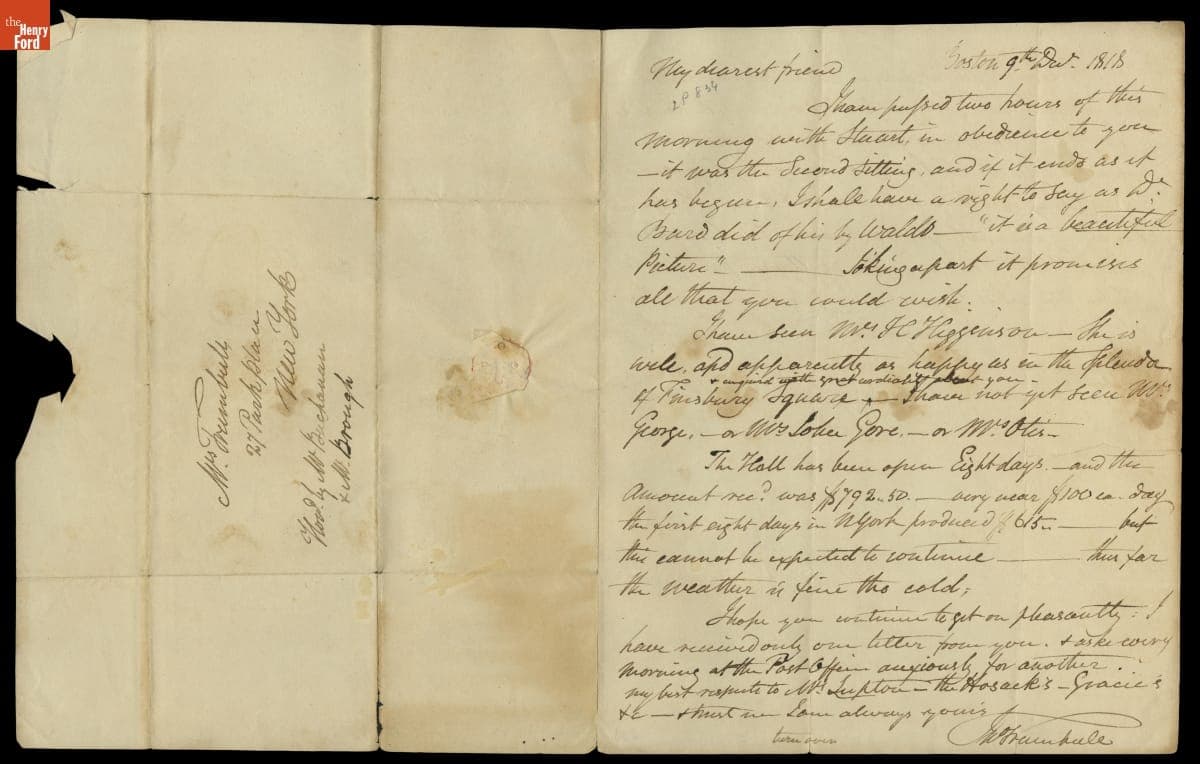 the
Henry
Ford
Mrs. Trumbull
27 Park place
New York
Hond. by Mr. Buchanan
& Mr. Brough
My dearest friend Boston 9th Decr. 1818
2P 834
I have passed two hours of this
morning with Stuart, in obedience to you
— it was the Second Sitting, and if it ends as it
has begun, I shall have a right to say as Dr.
Bard did of his by Waldo — "it is a beautiful
Picture" — Joking apart it promises
all that you could wish.
I have seen Mrs. H Higginson — She is
well, and apparently as happy as in the Splendor
& enquired with great cordiality about you —
of Finsbury Square — I have not yet seen Mrs.
George, — or Mrs John Gore, — or Mrs. Otis —
The Hall has been open Eight days. — and the
Amount recd. was $792.50. — very near $100 ea. day
the first eight days in NYork produced $615. — but
this cannot be expected to continue — thus far
the weather is fine tho cold;
I hope you continue to get on pleasantly: I
have received only one letter from you. & aske every
morning at the Post Office anxiously for another.
my best respects to Mrs. Lupton — the Hosack's — Gracie's
&c — & trust me I am always yours
Jno Trumbull
turn over